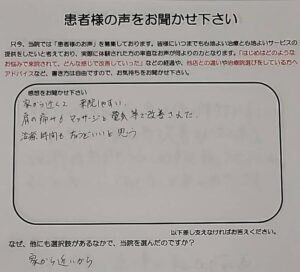 患者様の声をお聞かせ下さい
只今、当院では「患者様のお声」を募集しております。皆様にいつまでも心地よい治療と心地よいサービスの
提供をしたいと考えており、実際に体験された方の率直なお声が何よりの力となります。「はじめはどのような
お悩みで来院されて、どんな感じで改善していった」などの経過や、他店との違いや治療院選びをしている方へ
アドバイスなど、書き方は自由ですので、お気持ちをお聞かせ下さい。
感想をお聞かせ下さい
家から近くて 来院しやすい。
肩の痛みも マッサージと電気等で改善された
治療時間も ちょうどいいと思う
以下差し支えなければお答えください。
なぜ、他にも選択肢があるなかで、当院を選んだのですか？
家から近いから